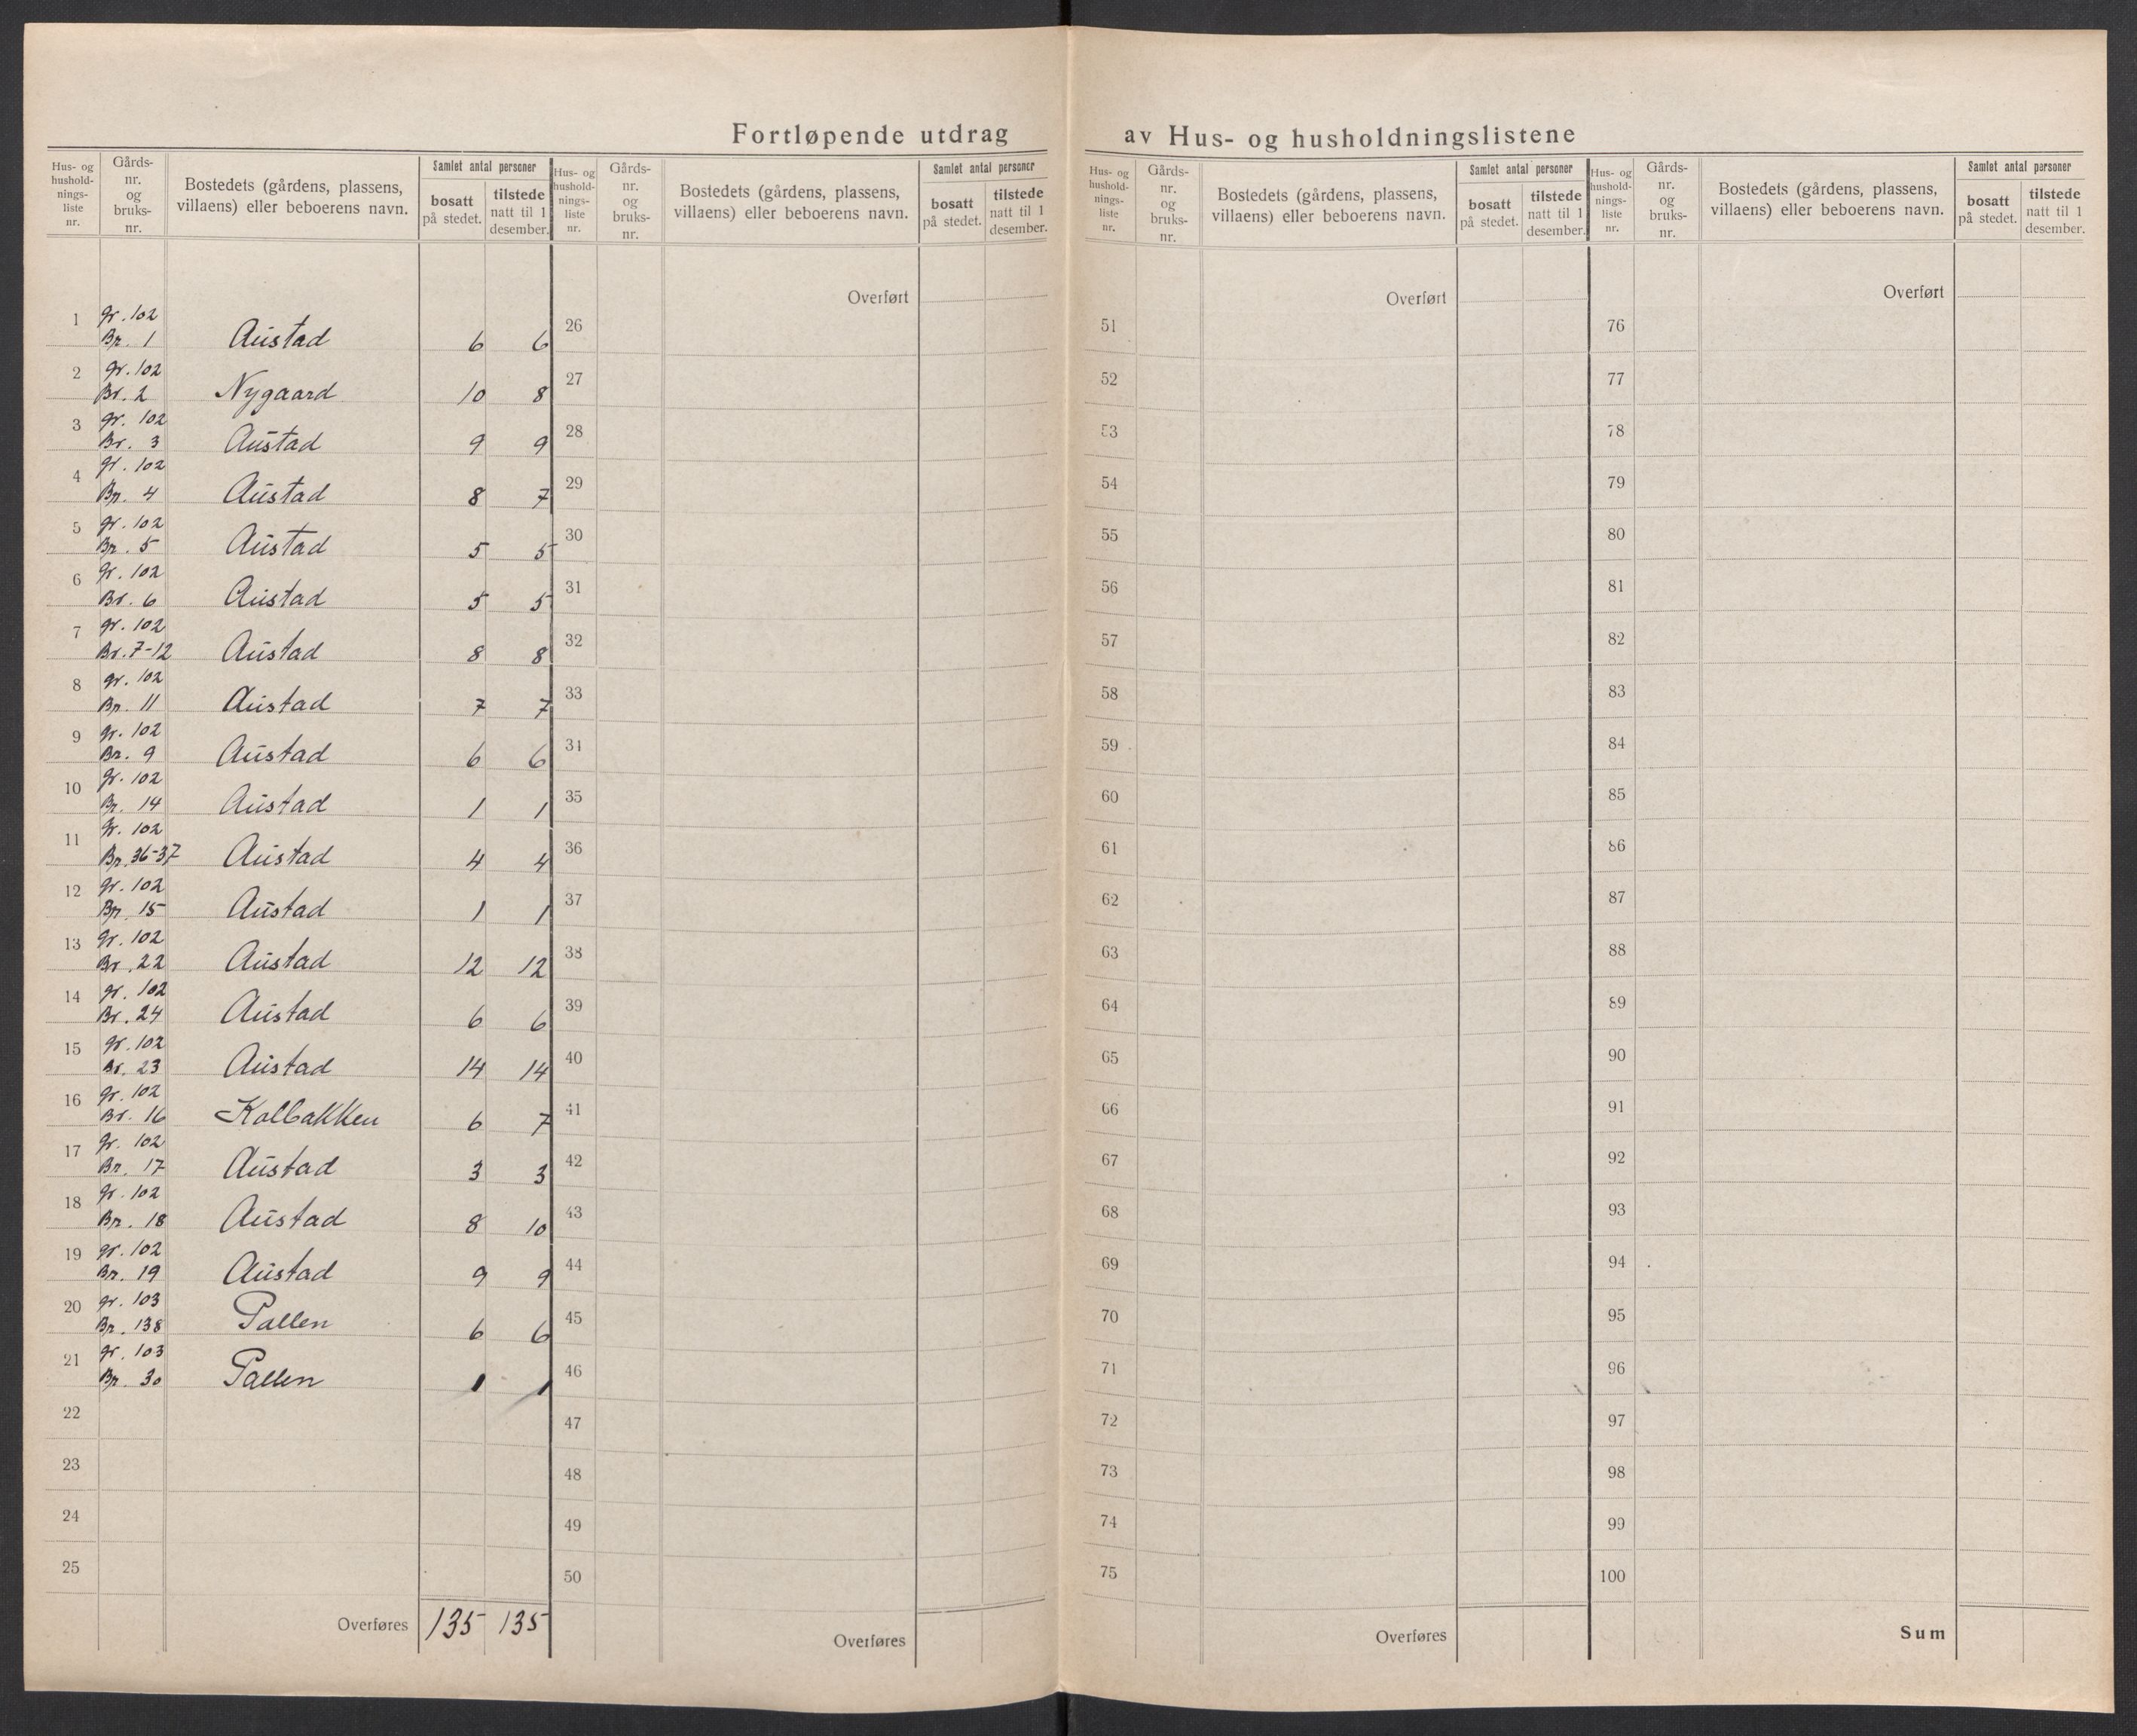 Fortløpende utdrag av Hus- og husholdningslistene
Hus- og hushold-nings-liste nr. | Gårds-nr. og bruks-nr. | Bostedets (gårdens, plassens, villaens) eller beboerens navn. | Samlet antal personer | bosatt på stedet. | tilstede natt til 1 desember.
1 gr. 102 Br. 1 Austad 6 6
2 gr. 102 Br. 2 Nygaard 10 8
3 gr. 102 Br. 3 Austad 9 9
4 gr. 102 Br. 4 Austad 8 7
5 gr. 102 Br. 5 Austad 5 5
6 gr. 102 Br. 6 Austad 5 5
7 gr. 102 Br. 7-12 Austad 8 8
8 gr. 102 Br. 11 Austad 7 7
9 gr. 102 Br. 9 Austad 6 6
10 gr. 102 Br. 14 Austad 1 1
11 gr. 102 Br. 36-37 Austad 4 4
12 gr. 102 Br. 15 Austad 1 1
13 gr. 102 Br. 22 Austad 12 12
14 gr. 102 Br. 24 Austad 6 6
15 gr. 102 Br. 23 Austad 14 14
16 gr. 102 Br. 16 Kolbakken 6 7
17 gr. 102 Br. 17 Austad 3 3
18 gr. 102 Br. 18 Austad 8 10
19 gr. 102 Br. 19 Austad 9 9
20 gr. 103 Br. 138 Pallen 6 6
21 gr. 103 Br. 30 Pallen 1 1
22
23
24
25
Overføres 135 135
Hus- og hushold-nings-liste nr. | Gårds-nr. og bruks-nr. | Bostedets (gårdens, plassens, villaens) eller beboerens navn. | Samlet antal personer | bosatt på stedet. | tilstede natt til 1 desember.
Overført
26
27
28
29
30
31
32
33
34
35
36
37
38
39
40
41
42
43
44
45
46
47
48
49
50
Overføres
Hus- og hushold-nings-liste nr. | Gårds-nr. og bruks-nr. | Bostedets (gårdens, plassens, villaens) eller beboerens navn. | Samlet antal personer | bosatt på stedet. | tilstede natt til 1 desember.
Overført
51
52
53
54
55
56
57
58
59
60
61
62
63
64
65
66
67
68
69
70
71
72
73
74
75
Overføres
Hus- og hushold-nings-liste nr. | Gårds-nr. og bruks-nr. | Bostedets (gårdens, plassens, villaens) eller beboerens navn. | Samlet antal personer | bosatt på stedet. | tilstede natt til 1 desember.
Overført
76
77
78
79
80
81
82
83
84
85
86
87
88
89
90
91
92
93
94
95
96
97
98
99
100
Sum